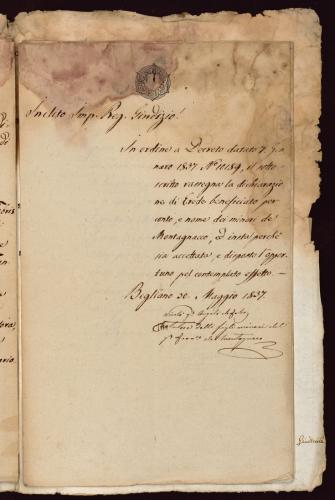 Inclito Imp. Reg. Giudizio!
In ordine a Decreto datato 7. Gen
naro 1837. N.° 10184, il sotto
scritto rassegna la dichiarazio
ne di Erede beneficiato per
conto, e nome dei minori de
Montagnacco, ed insta perchè
sia accettata, e disposto l'oppor
tuno pel contemplato effetto. —
Bigliano 30. Maggio 1837.
Tutore delli figli minori del
Giudiziale